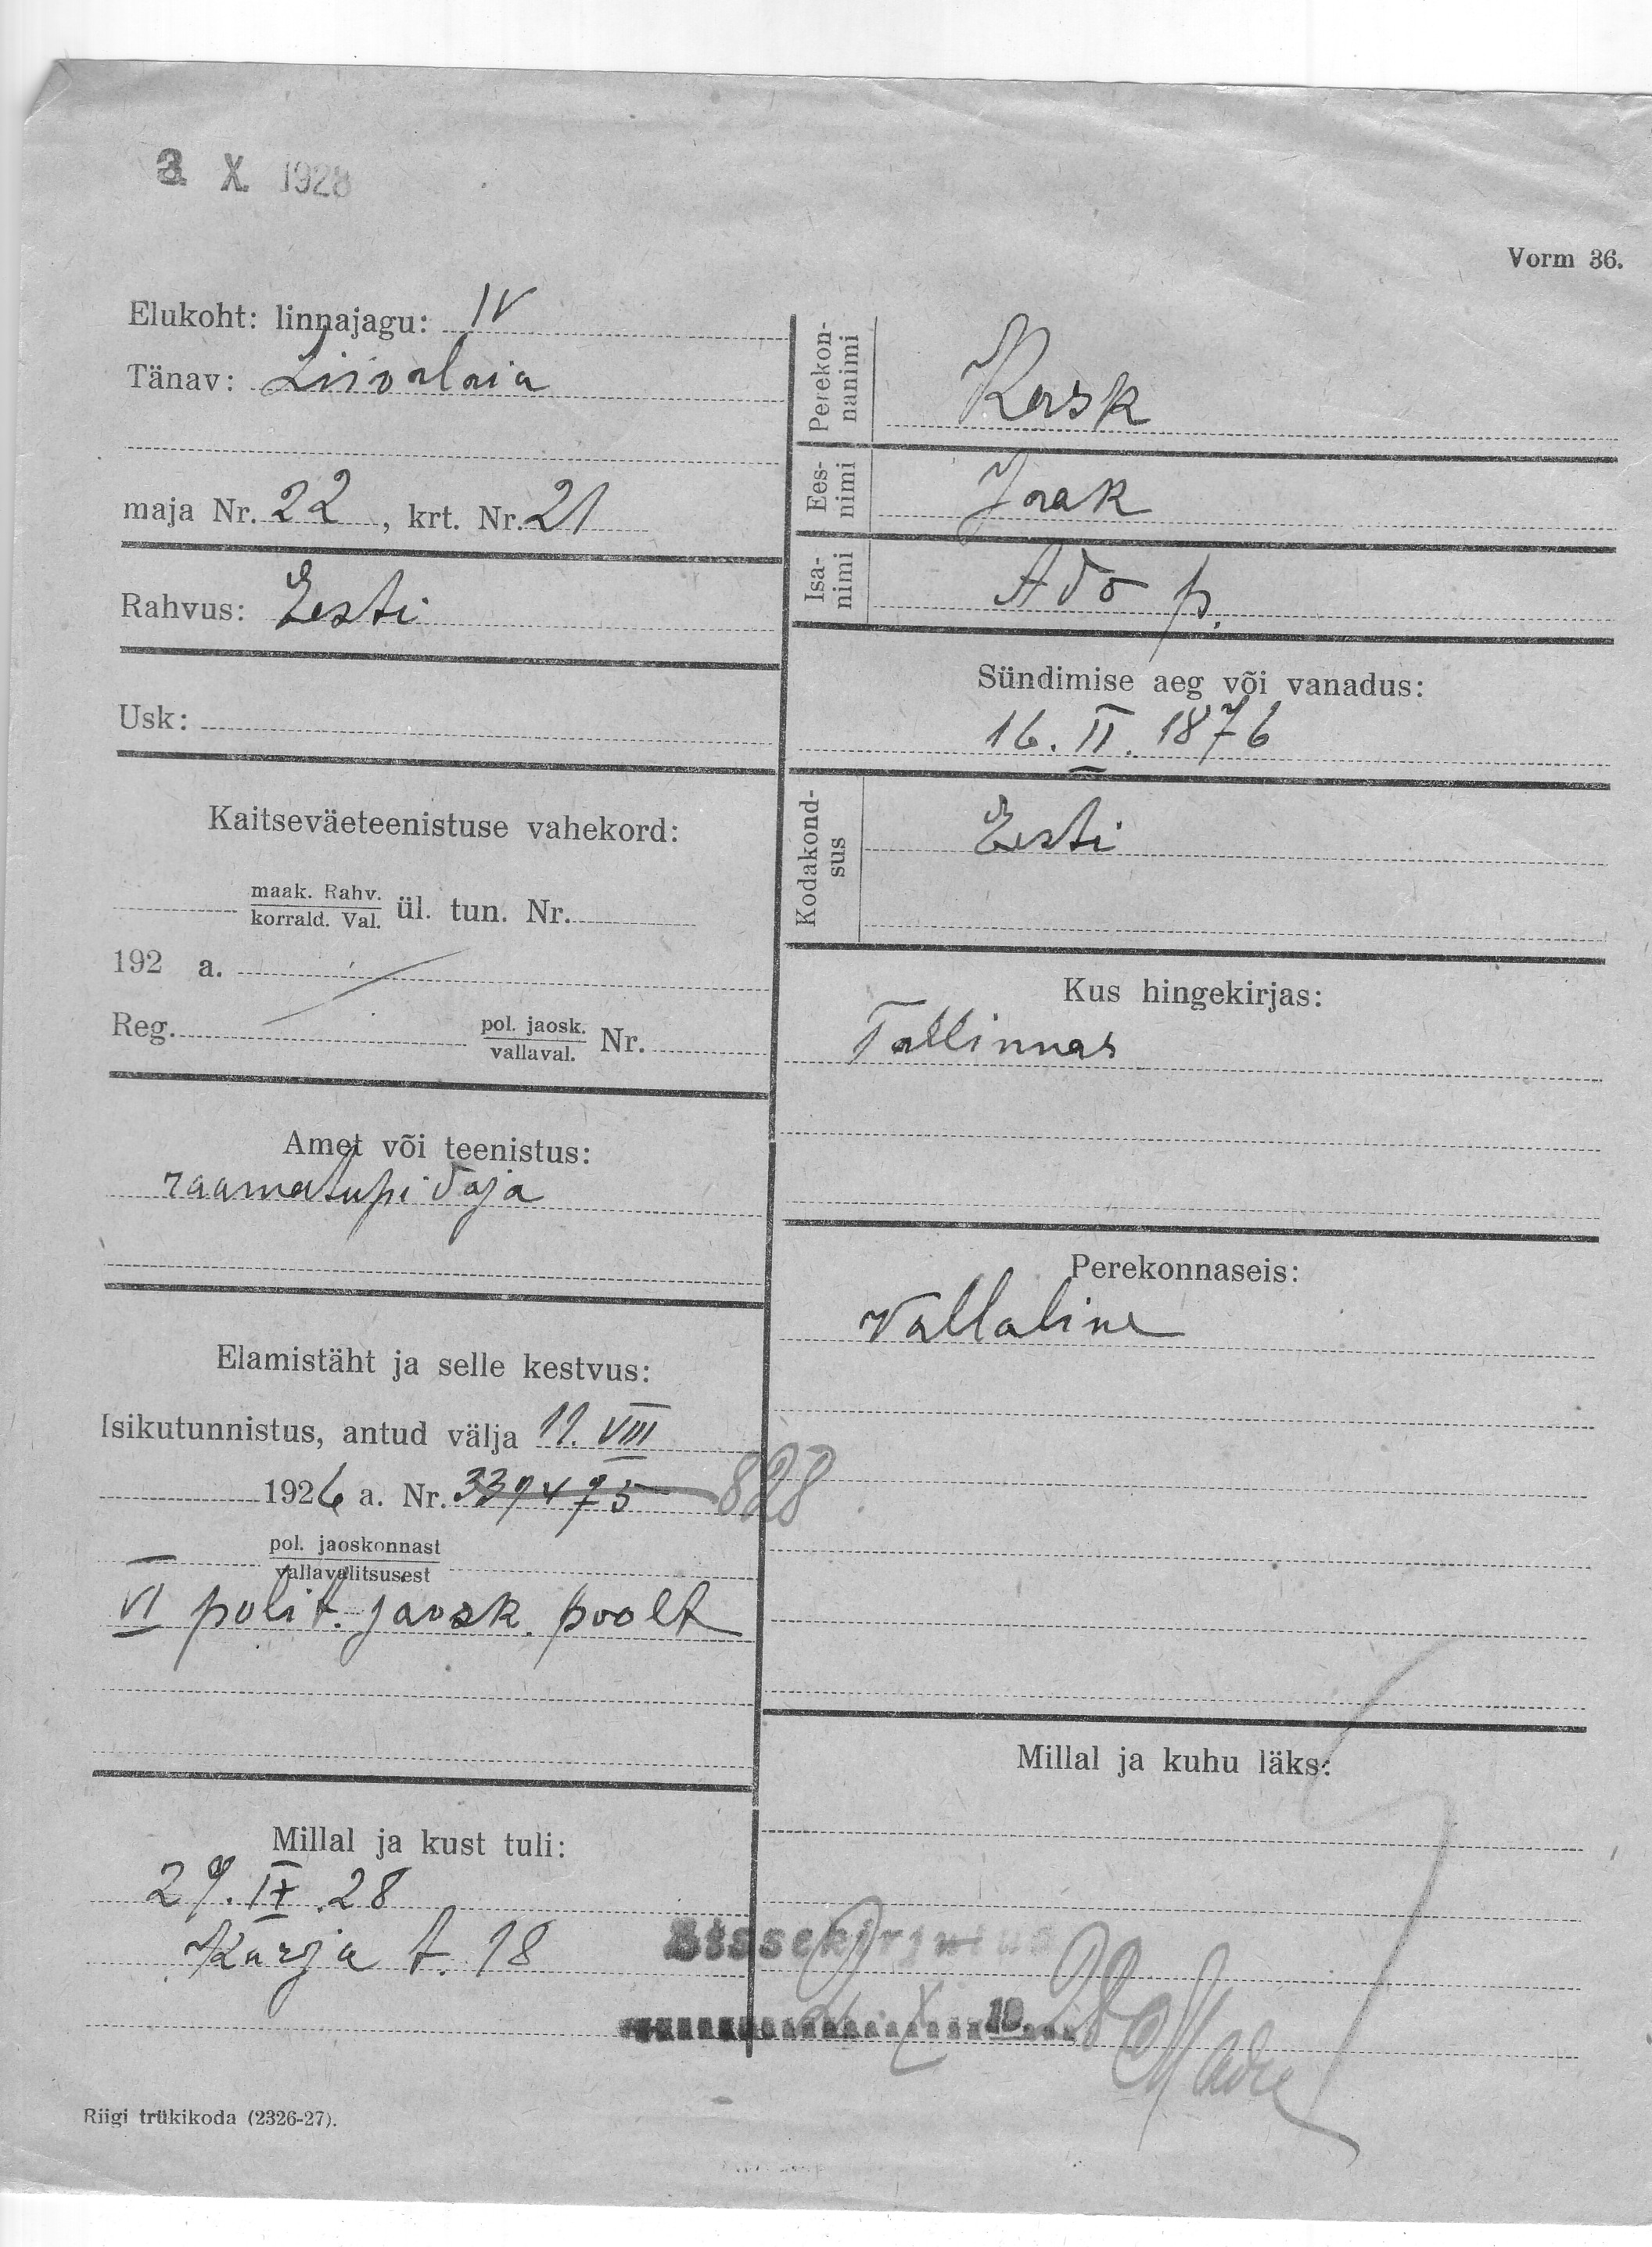 3. X. 1928
Vorm 36.
Elukoht: linnajagu: IV
Tänav: Liivalaia
maja Nr. 22, krt. Nr. 21
Rahvus: Eesti
Usk:
Kaitseväeteenistuse vahekord:
maak. Rahv.
korrald. Val. ül. tun. Nr.
192 a.
Reg. pol. jaosk.
vallaval. Nr.
Amet või teenistus:
raamatupidaja
Elamistäht ja selle kestvus:
Isikutunnistus, antud välja 11. VIII
1926 a. Nr. 828
pol. jaoskonnast
vallavalitsusest
VI polit. jaosk. poolt
Millal ja kust tuli:
29. IX. 28
Karja t. 18
Perekonnanimi
Kask
Eesnimi
Jaak
Isanimi
Ado p.
Sündimise aeg või vanadus:
16. II. 1876
Kodakondsus
Eesti
Kus hingekirjas:
Tallinnas
Perekonnaseis:
Vallaline
Millal ja kuhu läks:
Sissekirjutus
X 19 28
Riigi trükikoda (2326-27).